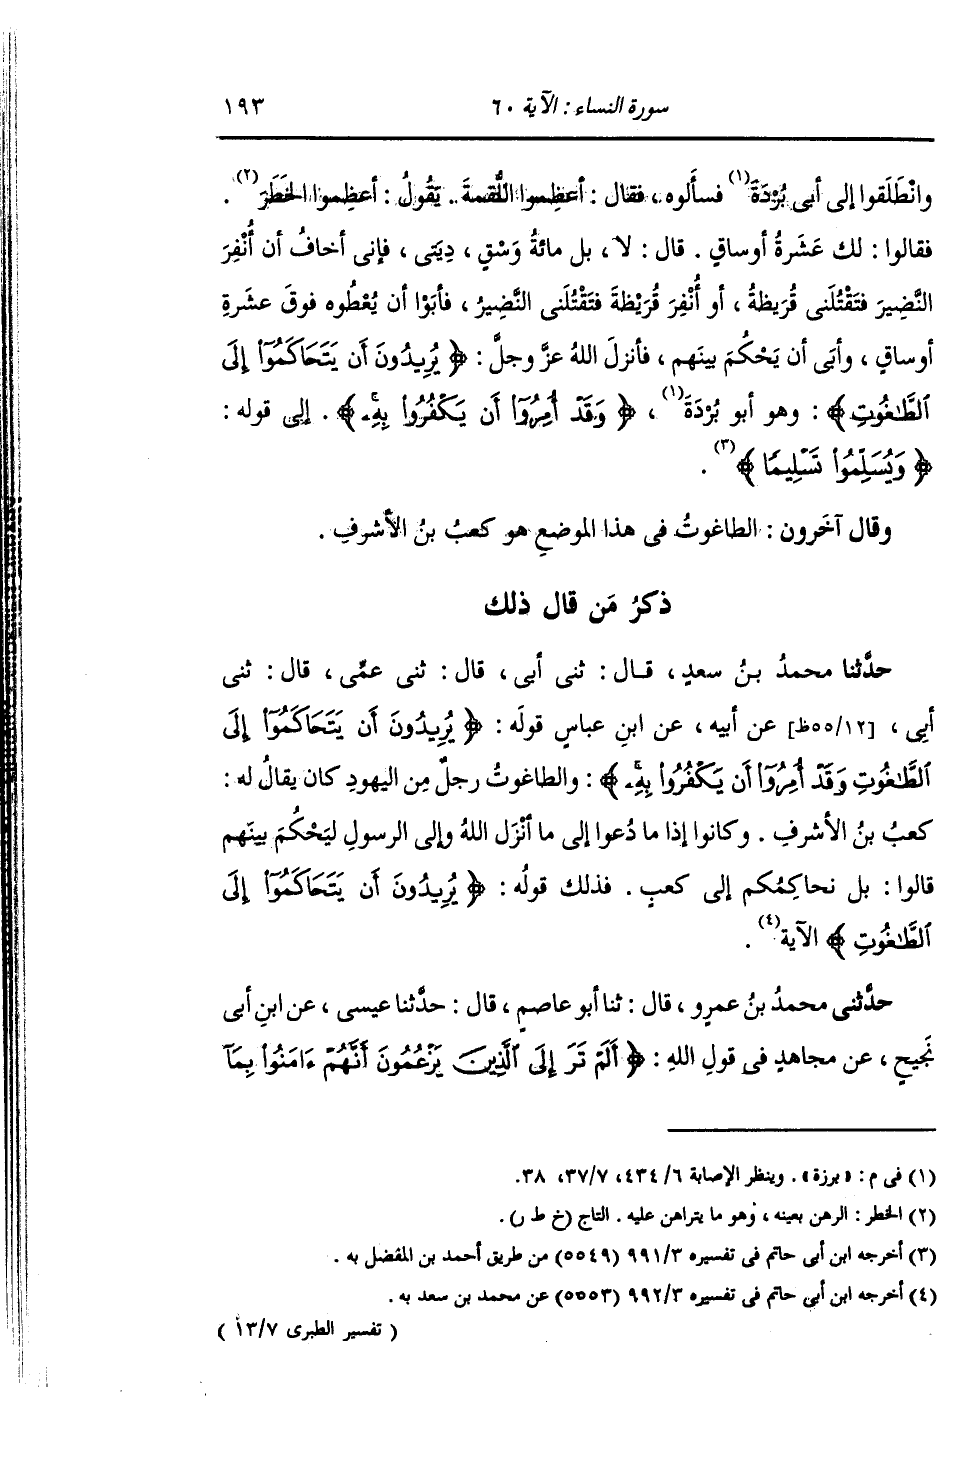 سورة النساء : الآية ٦٠ ١٩٣
وانْطَلَقوا إلى أبى بُرْدَةَ(١) فسأَلوه ، فقال : أعظِموا اللُّقمةَ . يَقُولُ : أعظِموا الخَطَرَ(٢) .
فقالوا : لك عَشَرةُ أوساقٍ . قال : لا ، بل مائةُ وَسْقٍ ، دِيَتى ، فإنى أخافُ أن أُنْفِرَ
النَّضِيرَ فتَقْتُلَنى قُرَيظةُ ، أو أُنْفِرَ قُرَيْظةَ فتَقْتُلَنى النَّضِيرُ ، فأبَوْا أن يُعْطُوه فوقَ عشَرةِ
أوساقٍ ، وأبَى أن يَحْكُمَ بينَهم ، فأنزلَ اللهُ عزَّ وجلَّ : ﴿ يُرِيدُونَ أَن يَتَحَاكَمُوٓا۟ إِلَى
ٱلطَّٰغُوتِ ﴾ : وهو أبو بُرْدَةَ(١) ، ﴿ وَقَدْ أُمِرُوٓا۟ أَن يَكْفُرُوا۟ بِهِۦ ﴾ . إلى قوله :
﴿ وَيُسَلِّمُوا۟ تَسْلِيمًا ﴾(٣) .
وقال آخَرون : الطاغوتُ فى هذا الموضعِ هو كعبُ بنُ الأشرفِ .
ذكرُ مَن قال ذلك
حدَّثنا محمدُ بنُ سعدٍ ، قال : ثنى أبى ، قال : ثنى عمِّى ، قال : ثنى
أبِى ، [٥٥/١٢ظ] عن أبيه ، عن ابنِ عباسٍ قولَه : ﴿ يُرِيدُونَ أَن يَتَحَاكَمُوٓا۟ إِلَى
ٱلطَّٰغُوتِ وَقَدْ أُمِرُوٓا۟ أَن يَكْفُرُوا۟ بِهِۦ ﴾ : والطاغوتُ رجلٌ مِن اليهودِ كان يقالُ له :
كعبُ بنُ الأشرفِ . وكانوا إذا ما دُعوا إلى ما أنْزَل اللهُ وإلى الرسولِ ليَحْكُمَ بينَهم
قالوا : بل نحاكِمُكم إلى كعبٍ . فذلك قولُه : ﴿ يُرِيدُونَ أَن يَتَحَاكَمُوٓا۟ إِلَى
ٱلطَّٰغُوتِ ﴾ الآية(٤) .
حدَّثنى محمدُ بنُ عمرٍو ، قال : ثنا أبو عاصمٍ ، قال : حدَّثنا عيسى ، عن ابنِ أبى
نَجيحٍ ، عن مجاهدٍ فى قولِ اللهِ : ﴿ أَلَمْ تَرَ إِلَى ٱلَّذِينَ يَزْعُمُونَ أَنَّهُمْ ءَامَنُوا۟ بِمَآ
(١) فى م : « برزة » . وينظر الإصابة ٦/ ٤٣٤، ٣٧/٧، ٣٨.
(٢) الخطر : الرهن بعينه ، وهو ما يتراهن عليه . التاج (خ ط ر) .
(٣) أخرجه ابن أبى حاتم فى تفسيره ٩٩١/٣ (٥٥٤٩) من طريق أحمد بن المفضل به .
(٤) أخرجه ابن أبى حاتم فى تفسيره ٩٩٢/٣ (٥٥٥٣) عن محمد بن سعد به .
( تفسير الطبرى ١٣/٧ )